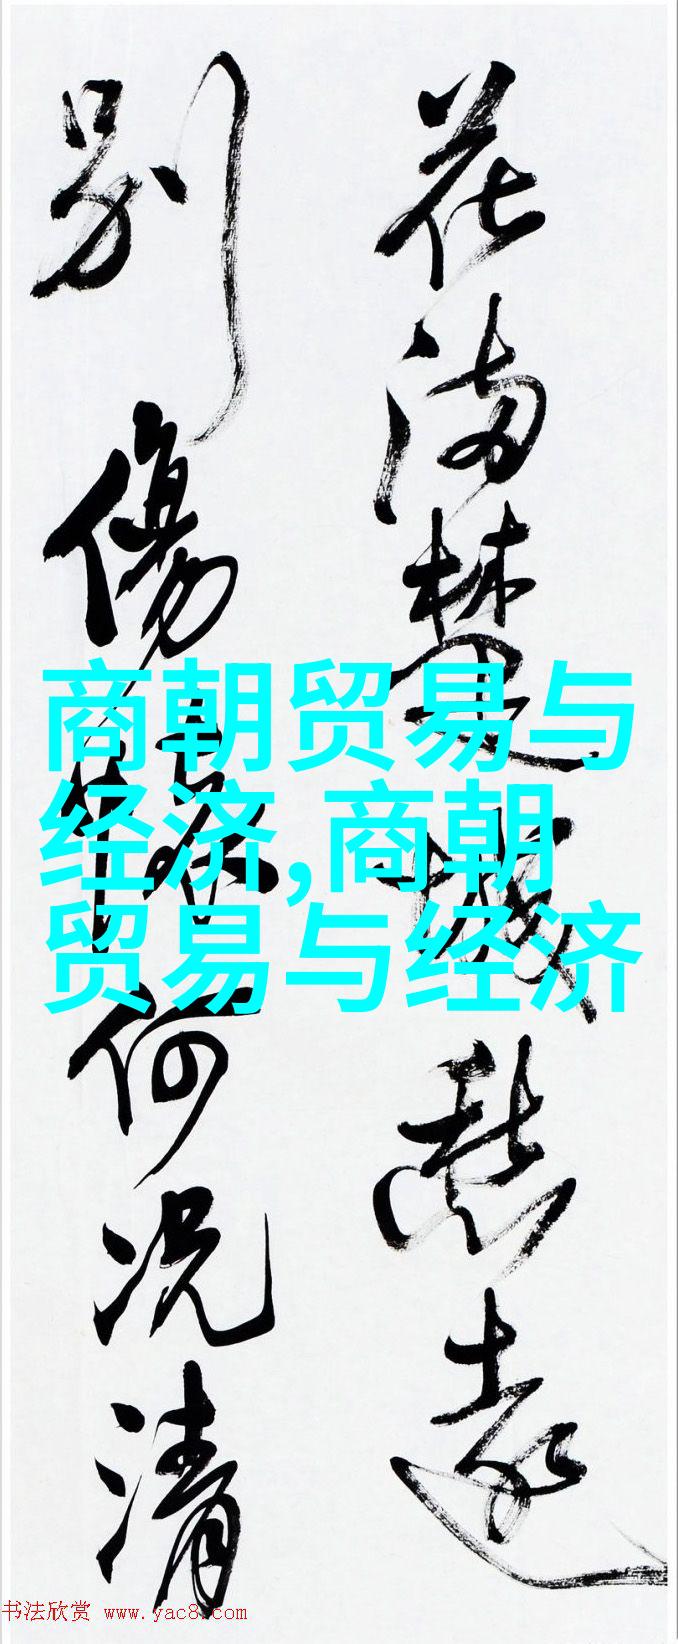 花滿楚城愁遠
別傷懷何況清
商朝贸易与
经济,商朝
贸易与经济
书法欣赏 www.yac8.com